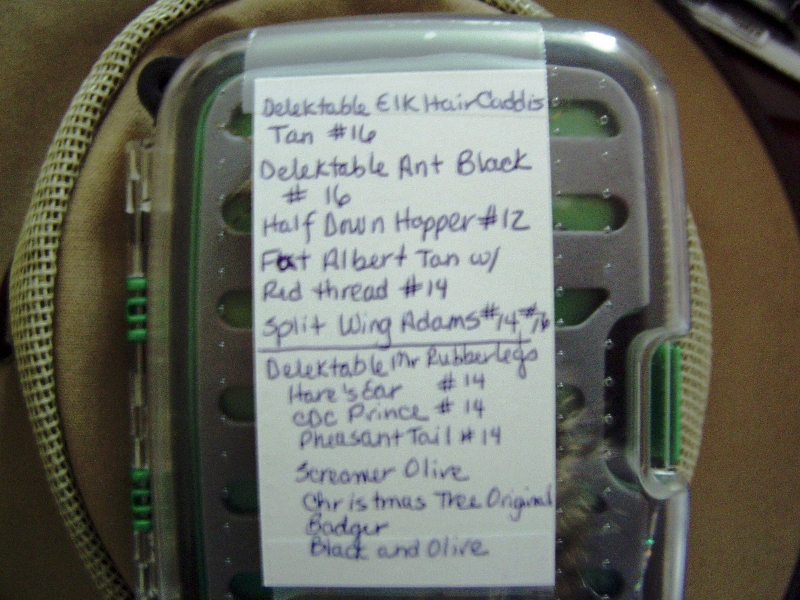 Delektable Elk Hair Caddis
Tan #16
Delektable Ant Black
# 16
Half Down Hopper #12
Fat Albert Tan w/
Red thread #14
Split Wing Adams #14, #16
Delektable Mr Rubberlegs
Hare's Ear #14
CDC Prince #14
Pheasant Tail #14
Screamer Olive
Christmas Tree Original
Badger
Black and Olive